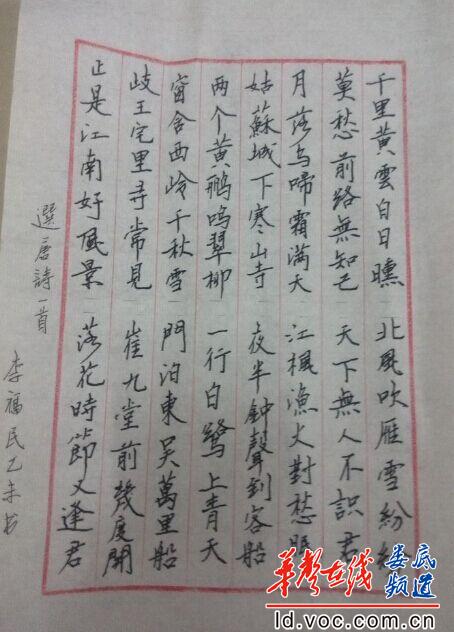 千里黄雲白日曛 北風吹雁雪紛紛
莫愁前路無知己 天下無人不識君
月落烏啼霜满天 江楓漁火對愁眠
姑蘇城下寒山寺 夜半鐘聲到客船
两个黄鹂鸣翠柳 一行白鷺上青天
窗含西岭千秋雪 門泊東吴萬里船
歧王宅里寻常見 崔九堂前幾度聞
正是江南好風景 落花時節又逢君
選唐詩一首
李福民乙未书
华声在线 娄底频道
ld.voc.com.cn